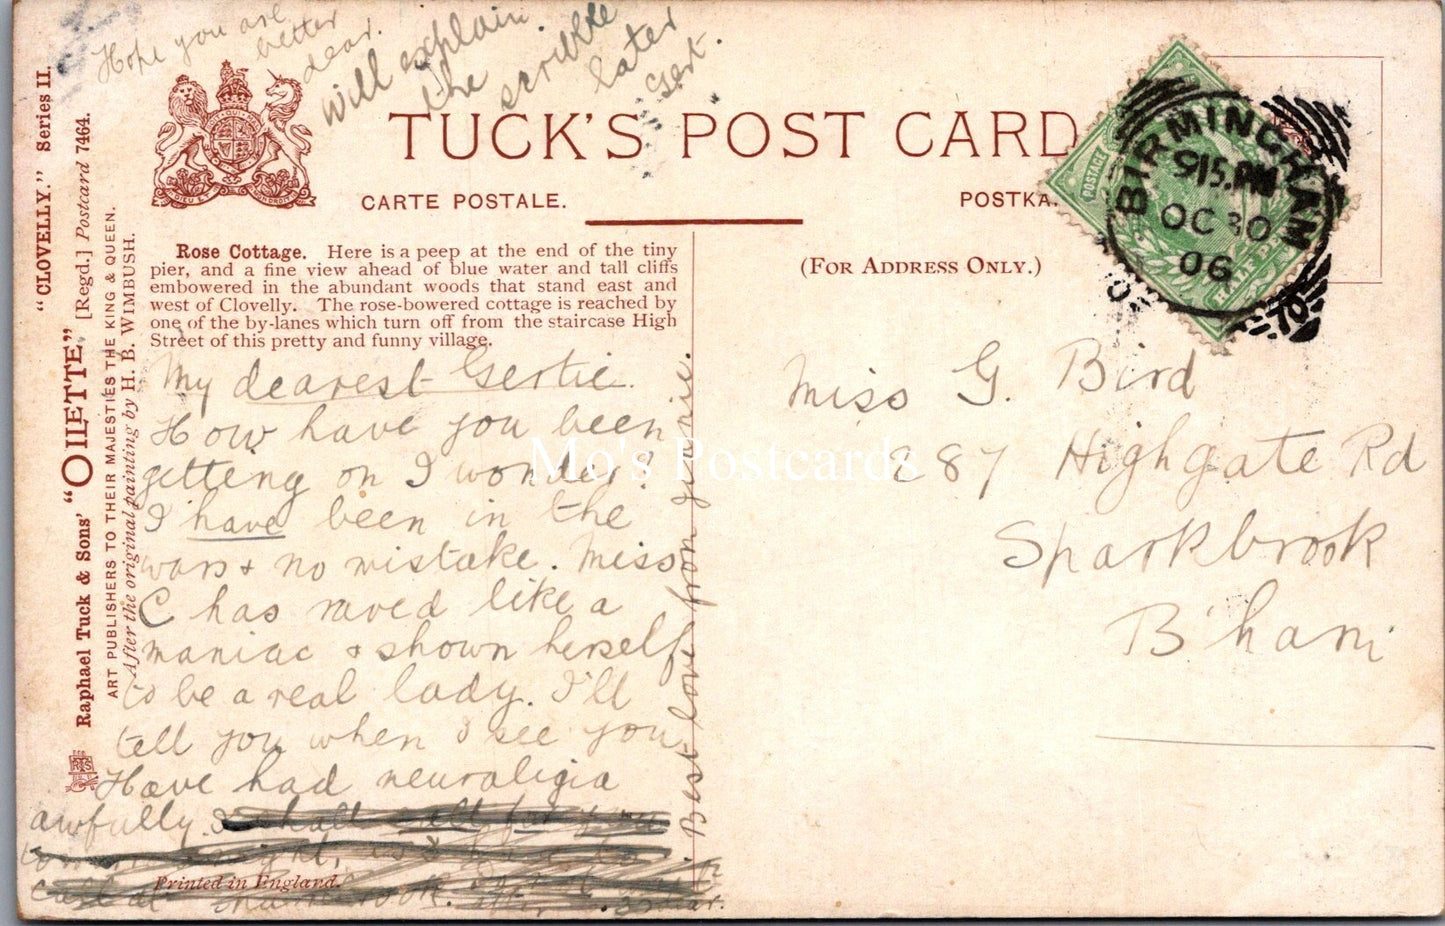 Hope you are
better
dear.
Will explain
the scribble
later
Gert.
TUCK'S POST CARD
CARTE POSTALE.
POSTKA
(FOR ADDRESS ONLY.)
POSTAGE
HALF PE
BIRMINGHAM
915.PM
OC 30
06
Rose Cottage. Here is a peep at the end of the tiny
pier, and a fine view ahead of blue water and tall cliffs
embowered in the abundant woods that stand east and
west of Clovelly. The rose-bowered cottage is reached by
one of the by-lanes which turn off from the staircase High
Street of this pretty and funny village.
My dearest Gertie.
How have you been
getting on I wonder?
I have been in the
wars & no mistake. Miss
C has raved like a
maniac & shown herself
to be a real lady. I'll
tell you when I see you
Have had neuraligia
awfully. I shall call for you
night,
call at
Best love from
Miss G. Bird
287 Highgate Rd
Sparkbrook
B'ham
"CLOVELLY." Series II.
Raphael Tuck & Sons' "OILETTE" [Regd.] Postcard 7464.
ART PUBLISHERS TO THEIR MAJESTIES THE KING & QUEEN.
After the original painting by H. B. WIMBUSH.
Printed in England.
Mo's Postcards